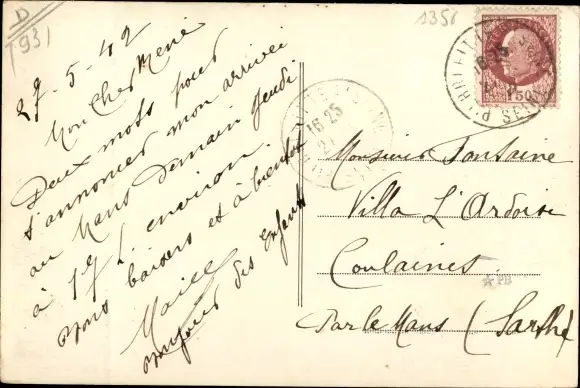 D
1931
1356
27-5-42
Mon cher René
Deux mots pour
t'annoncer mon arrivée
au Mans demain jeudi
à 17 h environ.
Bons baisers et à bientôt
bonjour des Enfants
16 25
27
PIERREFITTE
SEINE
1F50
Monsieur Fontaine
Villa L'Ardoise
Coulaines
Par le Mans (Sarthe)